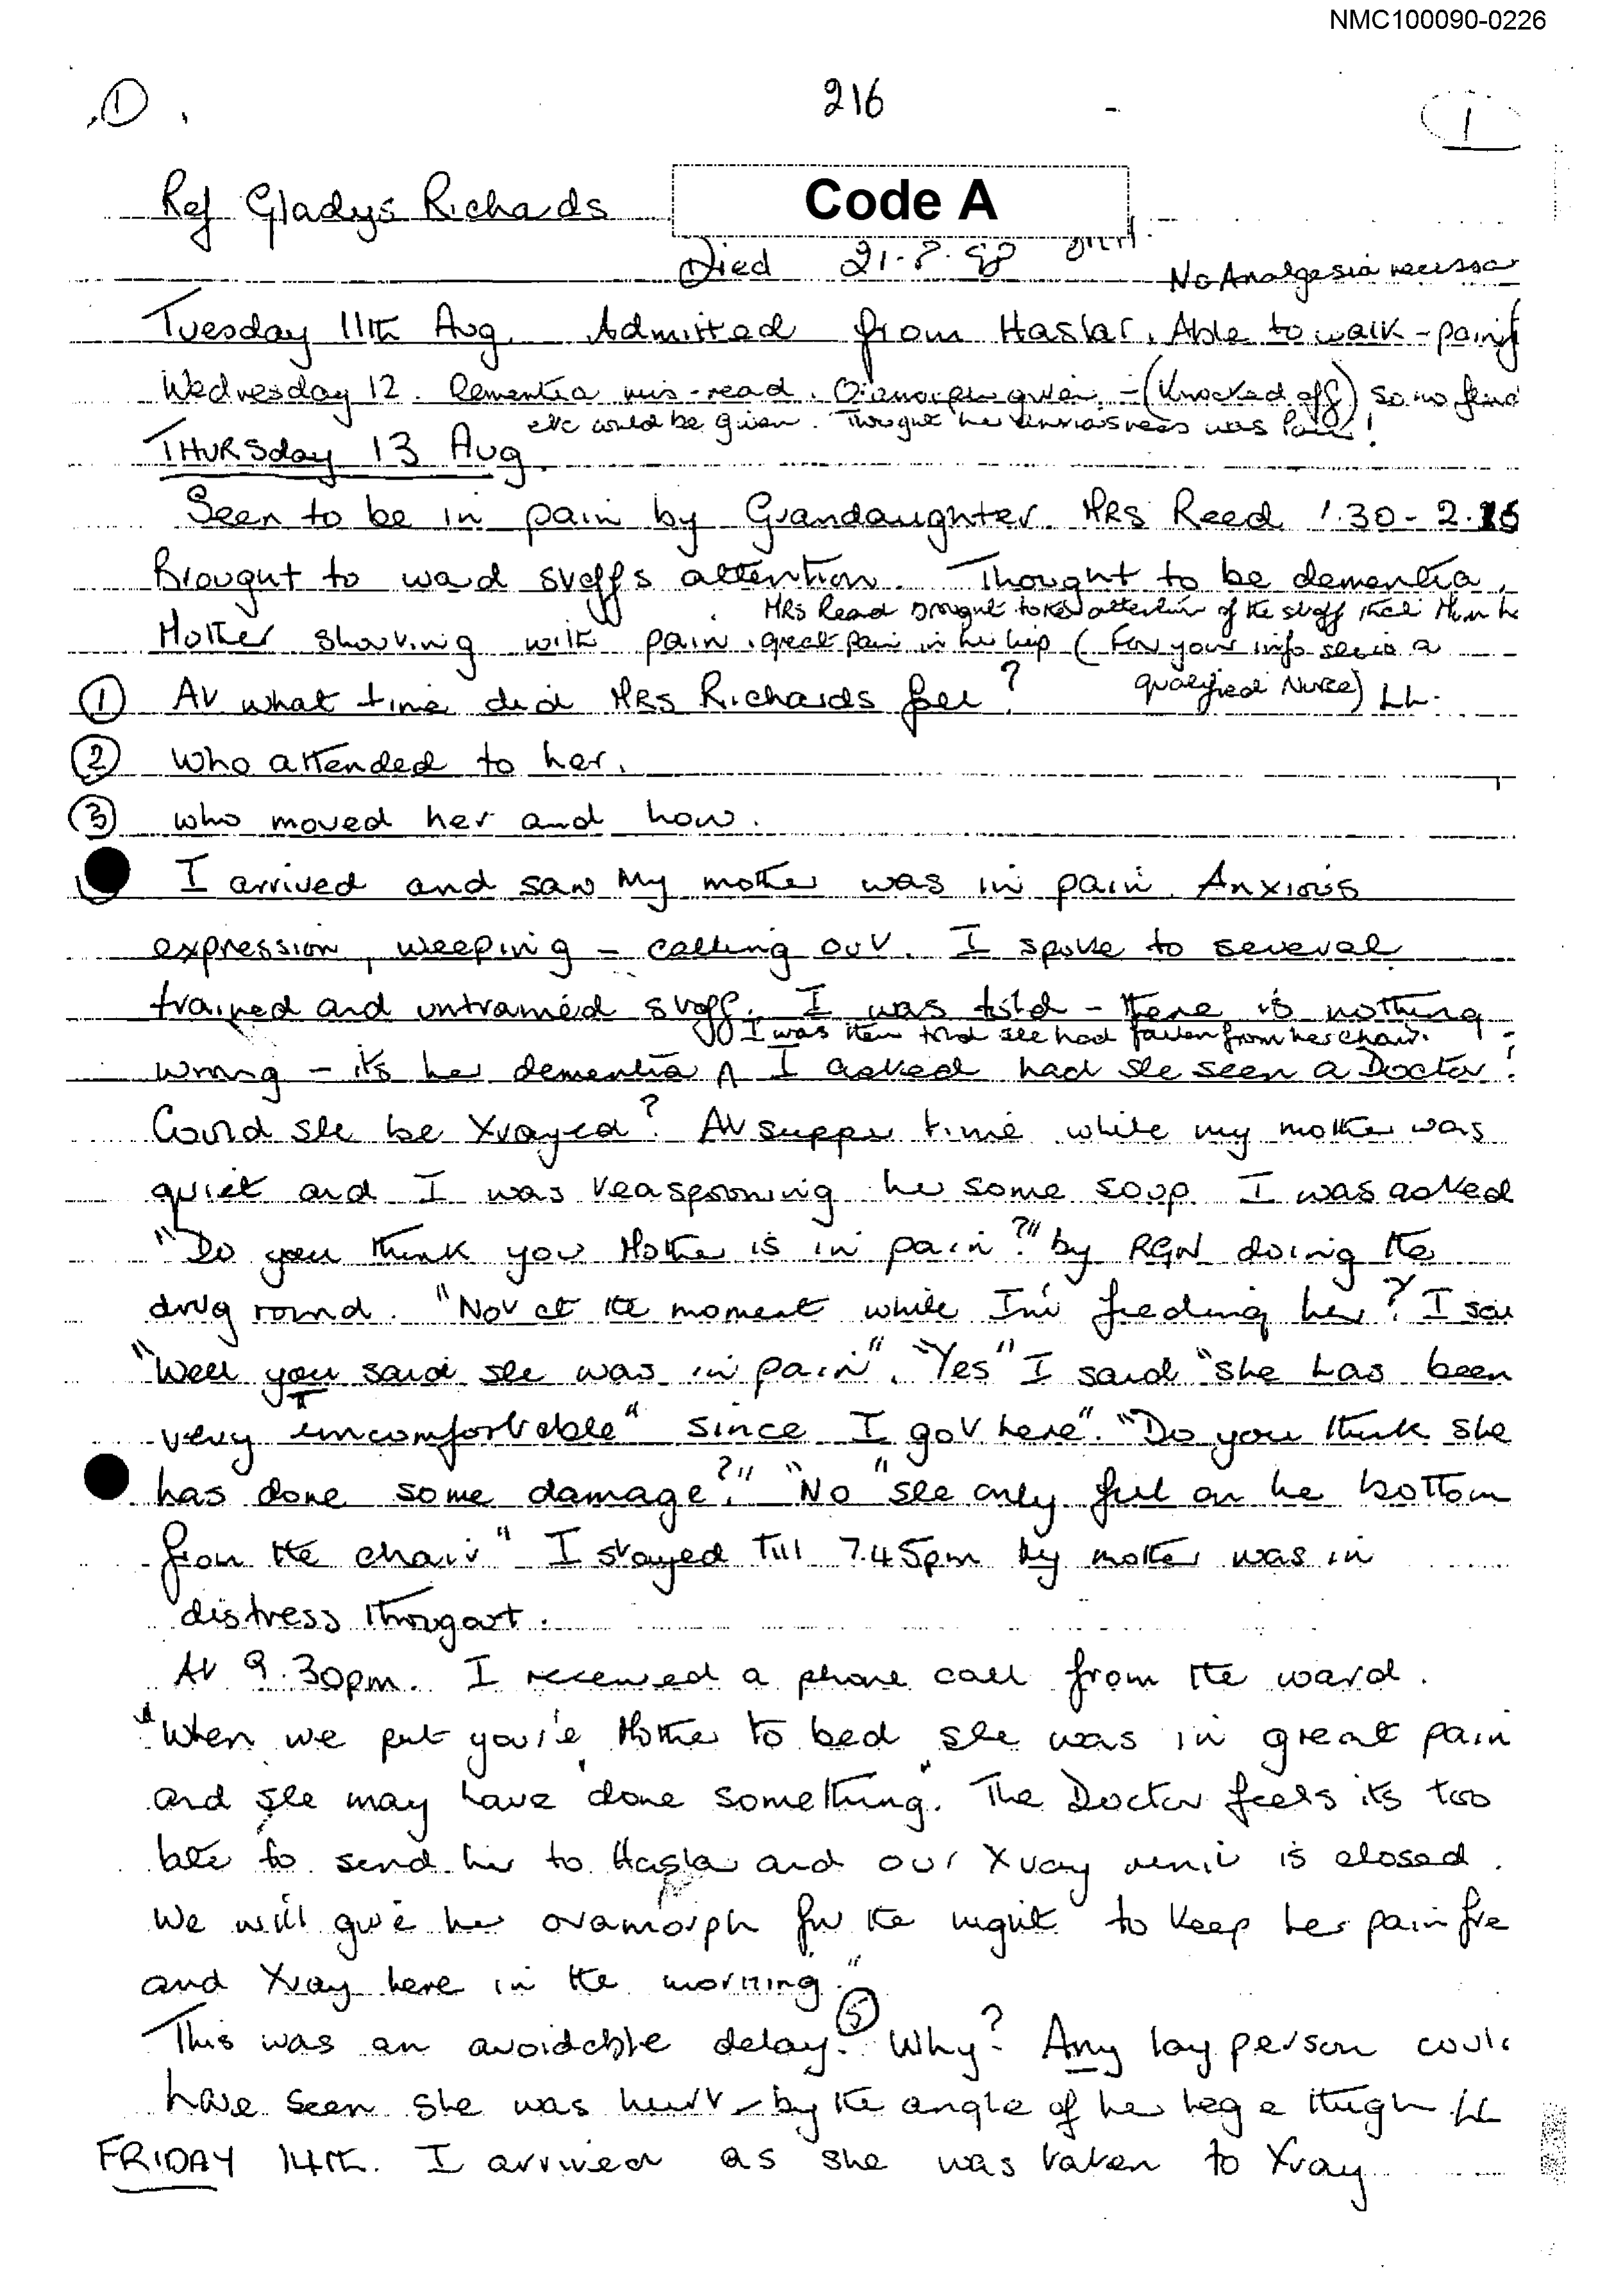 NMC100090-0226
① 216 1
Ref Gladys Richards Code A
Died 21.8.98
No Analgesia necessar
Tuesday 11th Aug. Admitted from Haslar. Able to walk - pain
Wednesday 12. Dementia mis-read. Diamorph given. - (Knocked off) so no
etc could be given. Thought her was Pain!
THURSday 13 Aug.
Seen to be in pain by Grandaughter. MRS Reed 1.30 - 2.
Brought to ward staffs attention. Thought to be dementia.
MRS Read brought to the attention of the staff that
Mother showing with pain. great pain in her hip (For your info she is a
qualified Nurse) LL.
① At what time did MRS Richards fall?
② Who attended to her.
③ who moved her and how.
I arrived and saw My mother was in pain. Anxious
expression, weeping - calling out. I spoke to several
trained and untrained staff. I was told - there is nothing
I was then told she had fallen from her chair.
wrong - its her dementia ∧ I asked had she seen a Doctor?
Could she be Xrayed? At supper time while my mother was
quiet and I was teaspooning her some soup. I was asked
"Do you think your Mother is in pain?" by RGN doing the
drug round. "Not at the moment while I'm feeding her? I sai
"Well you said she was in pain". "Yes" I said "she has been
very uncomfortable" since I got here". "Do you think she
has done some damage?" "No" "she only fell on her bottom
from the chair" I stayed till 7.45pm My mother was in
distress througout.
At 9.30pm. I received a phone call from the ward.
"When we put you're Mother to bed she was in great pain
and she may have "done something". The Doctor feels its too
late to send her to Haslar and our Xray unit is closed.
We will give her oramorph for the night to keep her pain fre
and Xray here in the morning."
This was an avoidable delay. ⑤ Why? Any lay person could
have seen she was hurt - by the angle of her leg & thigh LL
FRIDAY 14th. I arrived as she was taken to Xray